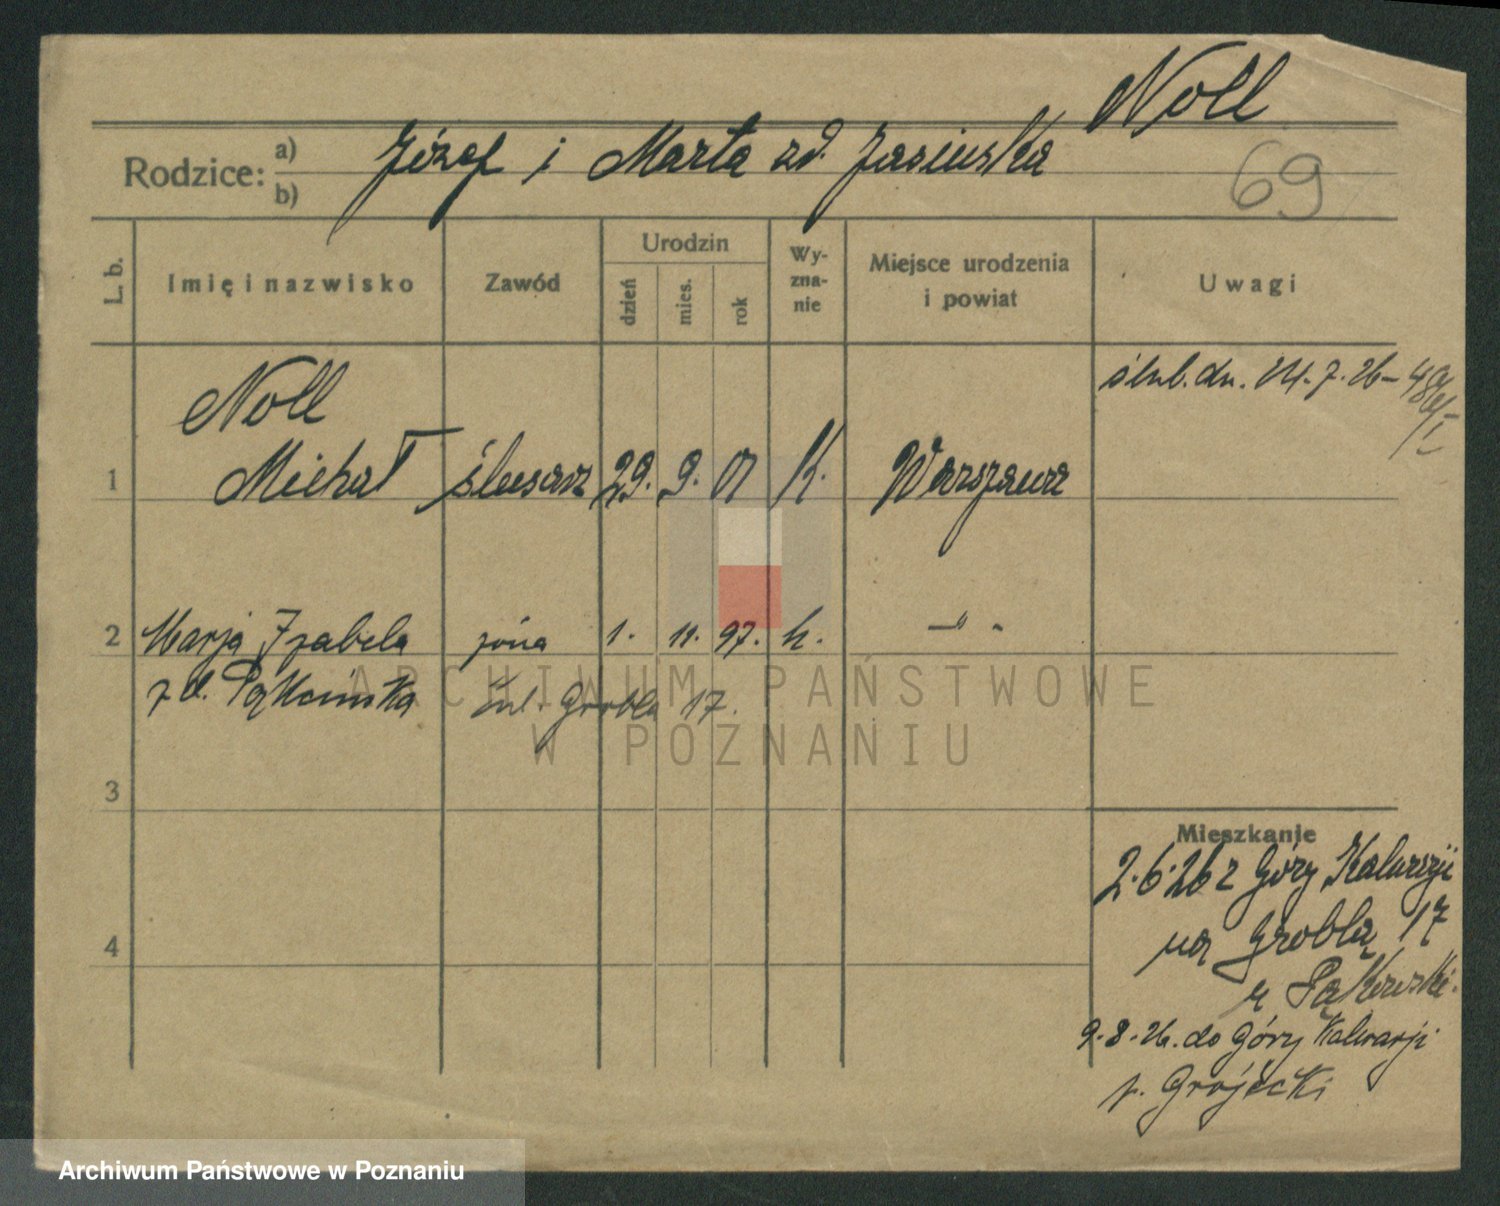 Noll
Rodzice: a) b) Józef i Marta zd. Jasińska
69
L. b. Imię i nazwisko Zawód Urodzin dzień mies. rok Wy-zna-nie Miejsce urodzenia i powiat Uwagi
ślub. dn. 24.7.26 –
Noll
1 Michał ślusarz 29. 9. 01 K. Warszawa
2 Marja Izabela żona 1. 11. 97. k. —„—
z d. ul. Grobla 17.
3
Mieszkanie
2.6.26 z Góry Kalwarji
na Grobla 17
4
u
9.8.26. do Góry Kalwarji
p. Grójecki
ARCHIWUM PAŃSTWOWE
W POZNANIU
Archiwum Państwowe w Poznaniu